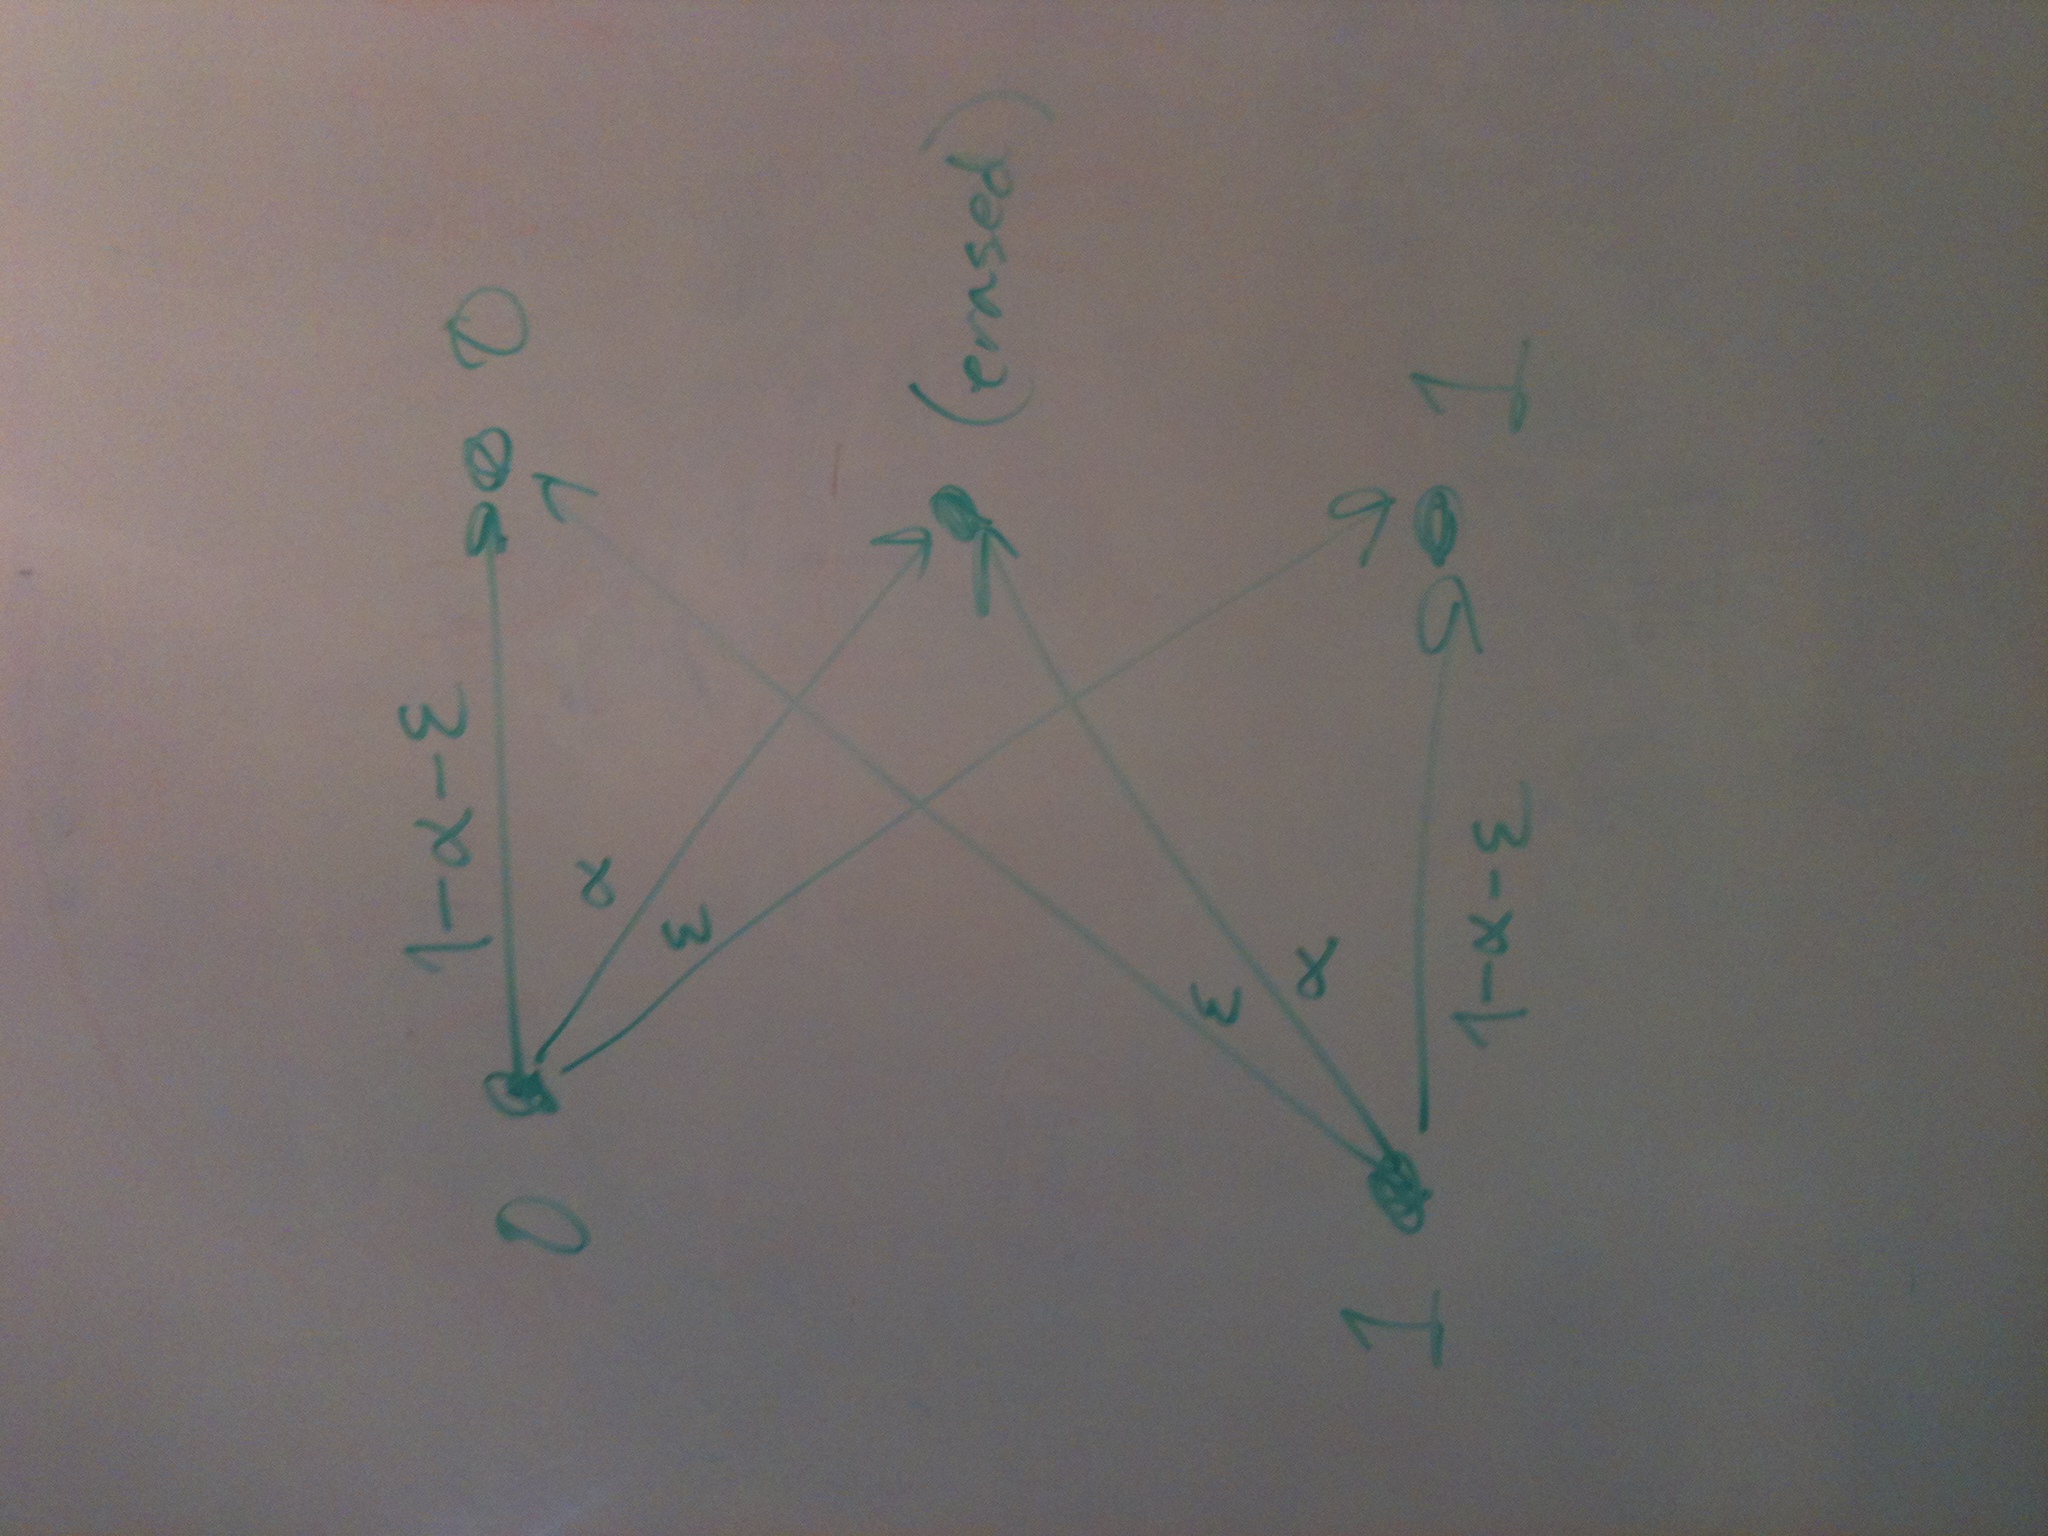 1-α-ε
0
0
α
ε
(erased)
ε
α
1
1-α-ε
1